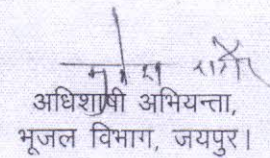 अधिशाषी अभियन्ता,
भूजल विभाग, जयपुर।